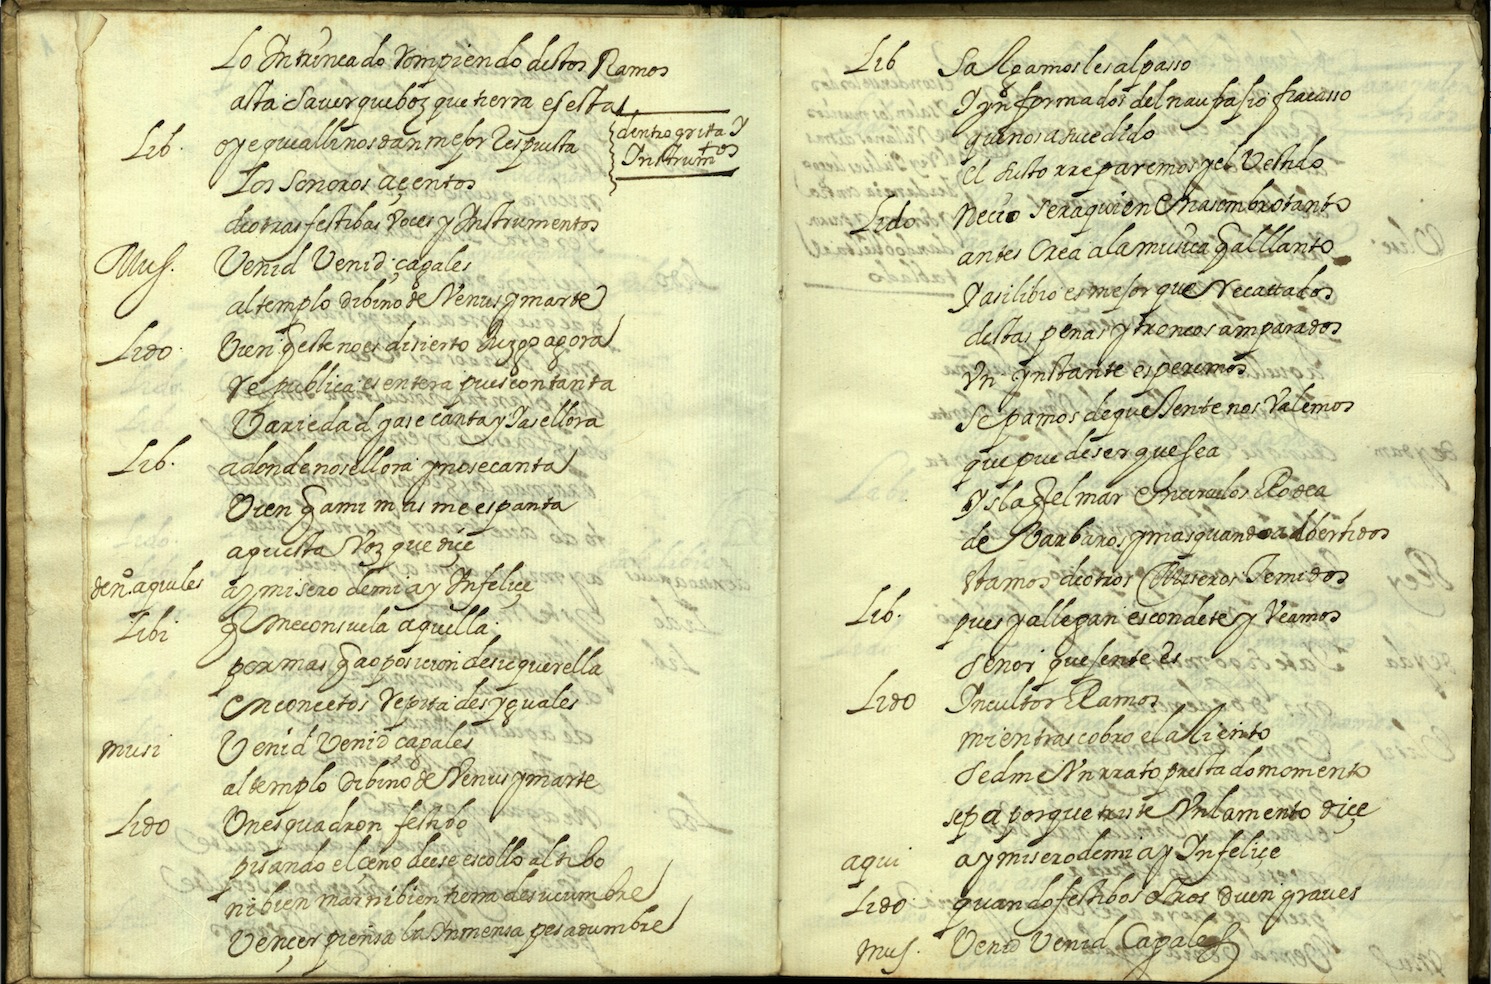 Lo Intrincado rompiendo destos Ramos
asta saver que boz que tierra es esta
Lib. oye que alli nos dan mejor Respuesta
dentro grita y
Instrumtos
Los sonoros açentos
de otras festibas voces y Instrumentos
Mus. Venid Venid çagales
al templo dibino de Venus y marte
Lido Vien q este no es disierto Juzgo agora
Republica es entera pues con tanta
Variedad ya se canta y ya se llora
Lib. a donde no se llora y no se canta
Vien q a mi mas me espanta
aquesta Voz que diçe
denº. aquiles ay misero de mi ay Infeliçe
Libi q me consuela aquella
por mas q a oposicion de su querella
en concetos repita desyguales
musi Venid Venid çagales
al templo dibino de Venus y marte
Lido Un esquadron festibo
pisando el çeno de ese escollo altibo
ni bien mar ni bien tierra de su cumbre
Vençer piensa la Inmensa pesadumbre
Lib Salgamosles al passo
y ynformados del naufrasio fracasso
que nos a sucedido
el susto rreparemos y el Vestido
Lido necio sera quien en asombro tanto
antes crea a la musica q al llanto
y asi libio es mejor que Recattados
destas penas y troncos amparados
Un ynstante esperemos
sepamos de que Jente nos Valemos
que puede ser que sea
ysla q el mar en circulos Rodea
de Barbaros y mas quando adbertidos
Estamos de otros Miseros Jemidos
Lib. pues ya llegan escondete y Veamos
Señor que jente es
Lido Incultos Ramos
mientras cobro el aliento
dedme Un rrato prestado momento
sepa porque triste Un lamento diçe
aqui ay misero de mi ay Infeliçe
Lido quando festibos otros diçen graves
Mus. Venid Venid Çagales